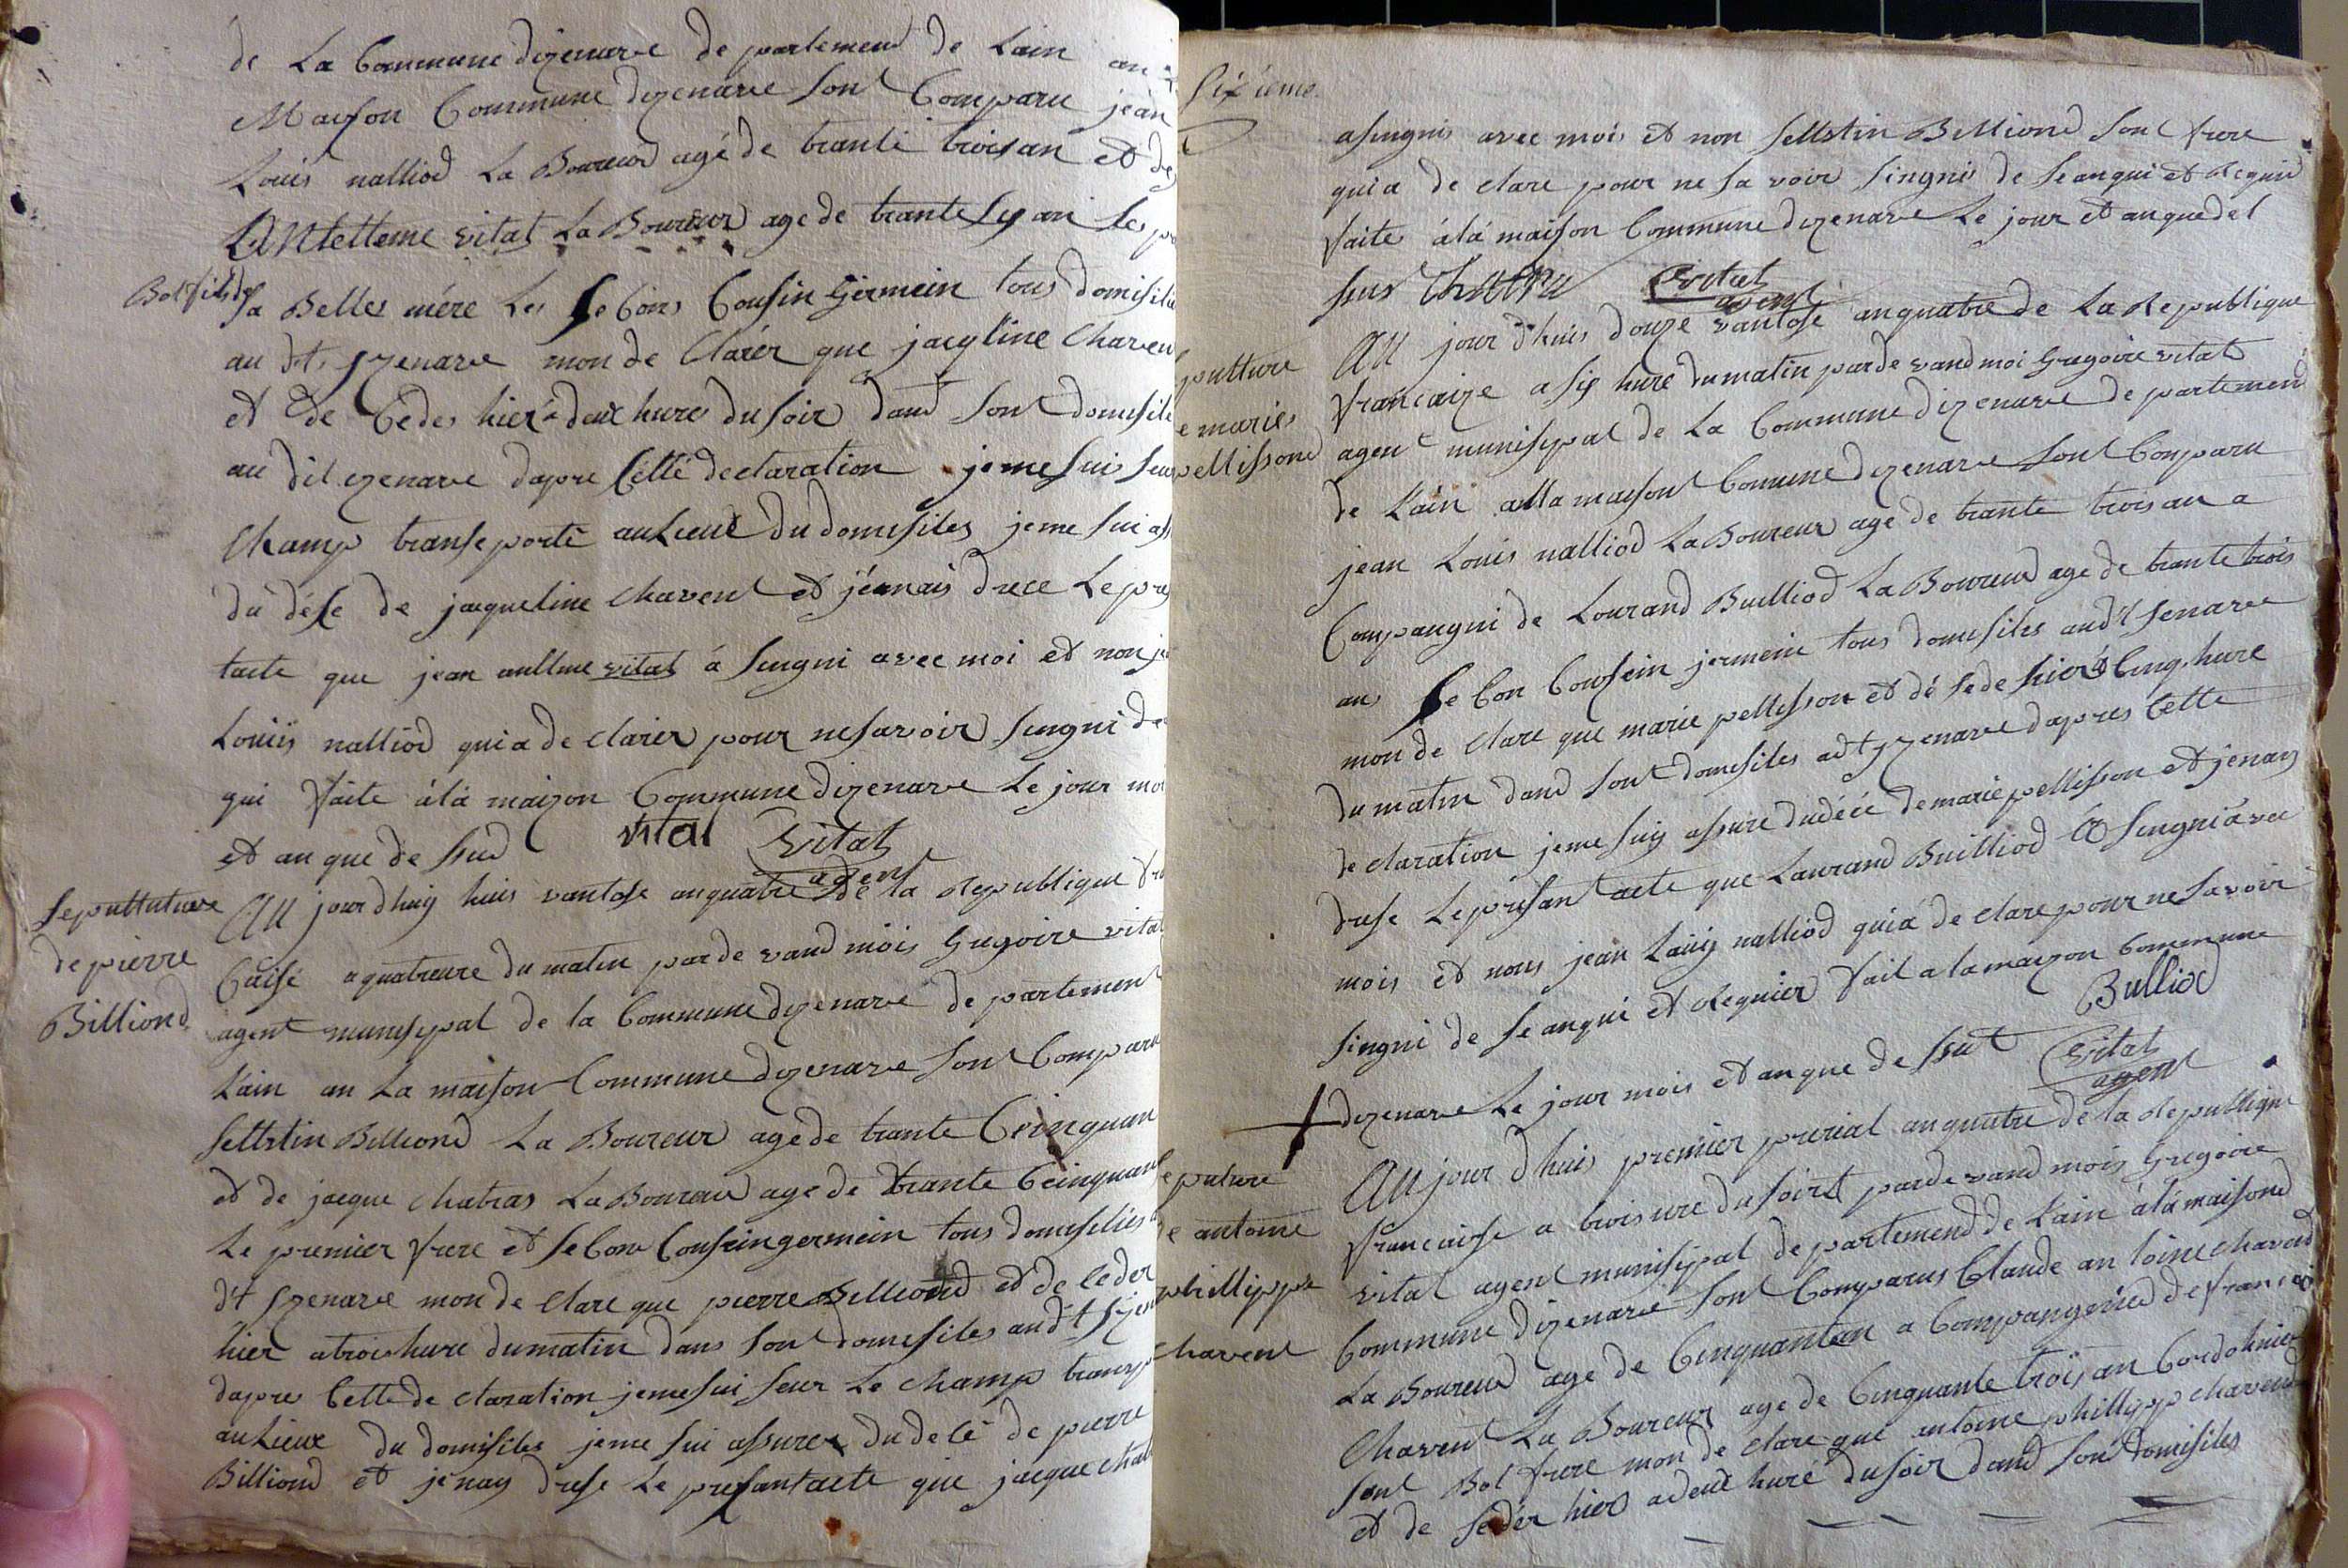 de La Commune dizenave de partemend de Lain an
Maison Commune dizenave sont Comparu jean
Louis nalliod La Boureur agé de trante troisan et de
ANtelteme vital La Boureur age de trante sy an Le
Bol fils de
sa Belles mére Les se Cons Cousin germein tous domisilie
au dt izenave mon de Clarér que jacqline Chavent
et de Cedes hier a deux hures du soir dand sont domisile
au dit izenave dapre Cette declaration je me suis seur
Champ transe porté au Lieux du domisiles je me sui ass
du dése de jacqueline Chavent et jénnais drece Le pres
tacte que jean anllme vital á sengni avec moi et non je
Louiis nalliod quia de clarer pour nesavoir sengni de
qui faite álá maizon Commune dizenave Le jour moi
et an que de sud vital vital
agent
Sepultuture
de pierre
Billiond
AU jourdhuiy huis vantose anquatre de la Republique fra
Caise a quatreure du matin par de vand móis Gregoire vital
agent munisypal de la Commune dizenave de partement
Lain an La maison Commune dizenave sont Comparu
Sellstin Billiond La Boureur age de trante Ceinquan
et de jacque Chatras La Boureur age de trante Ceinquan
Le premier frere et se Con Couseingermein tous domisilies
dt izenave mon de Clare que pierre Billiond et de Ceder
hier atroishure dumatin dans sont domesiles au dt izen
dapres Cette de claration jemesui seur Le Champ transp
au Lieux du domisiles jeme sui assurer du de cé de pierre
Billiond et jenay drese Le presantacte que jacque chat
Sixieme
asengnis avec mois et non sellstin Billiond sont frere
quia de clare pour ne sa voir singnis de seanqui et Requis
faite álá maison Commune dizenave Le jour et anquedel
sus Chatra vital
agent
putture
e maries
pellissond
AU jour dhuis douze vantose anquatre de La Republique
francaize a siy hure dumatin parde vandmoi Gregoire vital
agent munisypal de La Commune dizenave de partemend
de Lain alla maison Comune dizenave sont Comparu
jean Louis nalliod LaBoureur age de trante trois an a
Compangni de Lourand Builliod La Boureur age de trante trois
an se Con Cousein jermein tous domesiles au dt senave
mon de Clare que marie pellisson et dé sede hier á Cinq hure
du matin dand sont domesiles adt izenave dapres Cette
declaration jeme suiy assure dudéce de marie pellisson et jenay
drese Le presant acte que Laurand Builliod a sengni avec
mois et nons jean Louiy nalliod quia de clare pour ne savoir
singni de seanqui et Requier fait a la maizon Commune
dizenave Le jour mois et an que de sut Bulliod
vital
agent
epulture
de antoine
phillippe
Chavent
AU jour dhuis premier prerial an quatre de la Republique
francaise a troisure du soirt parde vand mois Gregoire
vital agent munisipal de partemend de Lain álá maisond
Commune dizenave sont Comparus Claude antoine Chavend
La Boureur age de Cinquanten a Compangnied de francois
Chavent La Boureur age de Cinquante troisan Cordohnier
sont Bol frere mon de clare que antoine phillypp chavend
et de seder hier adeux huré du soir dand son domisiles